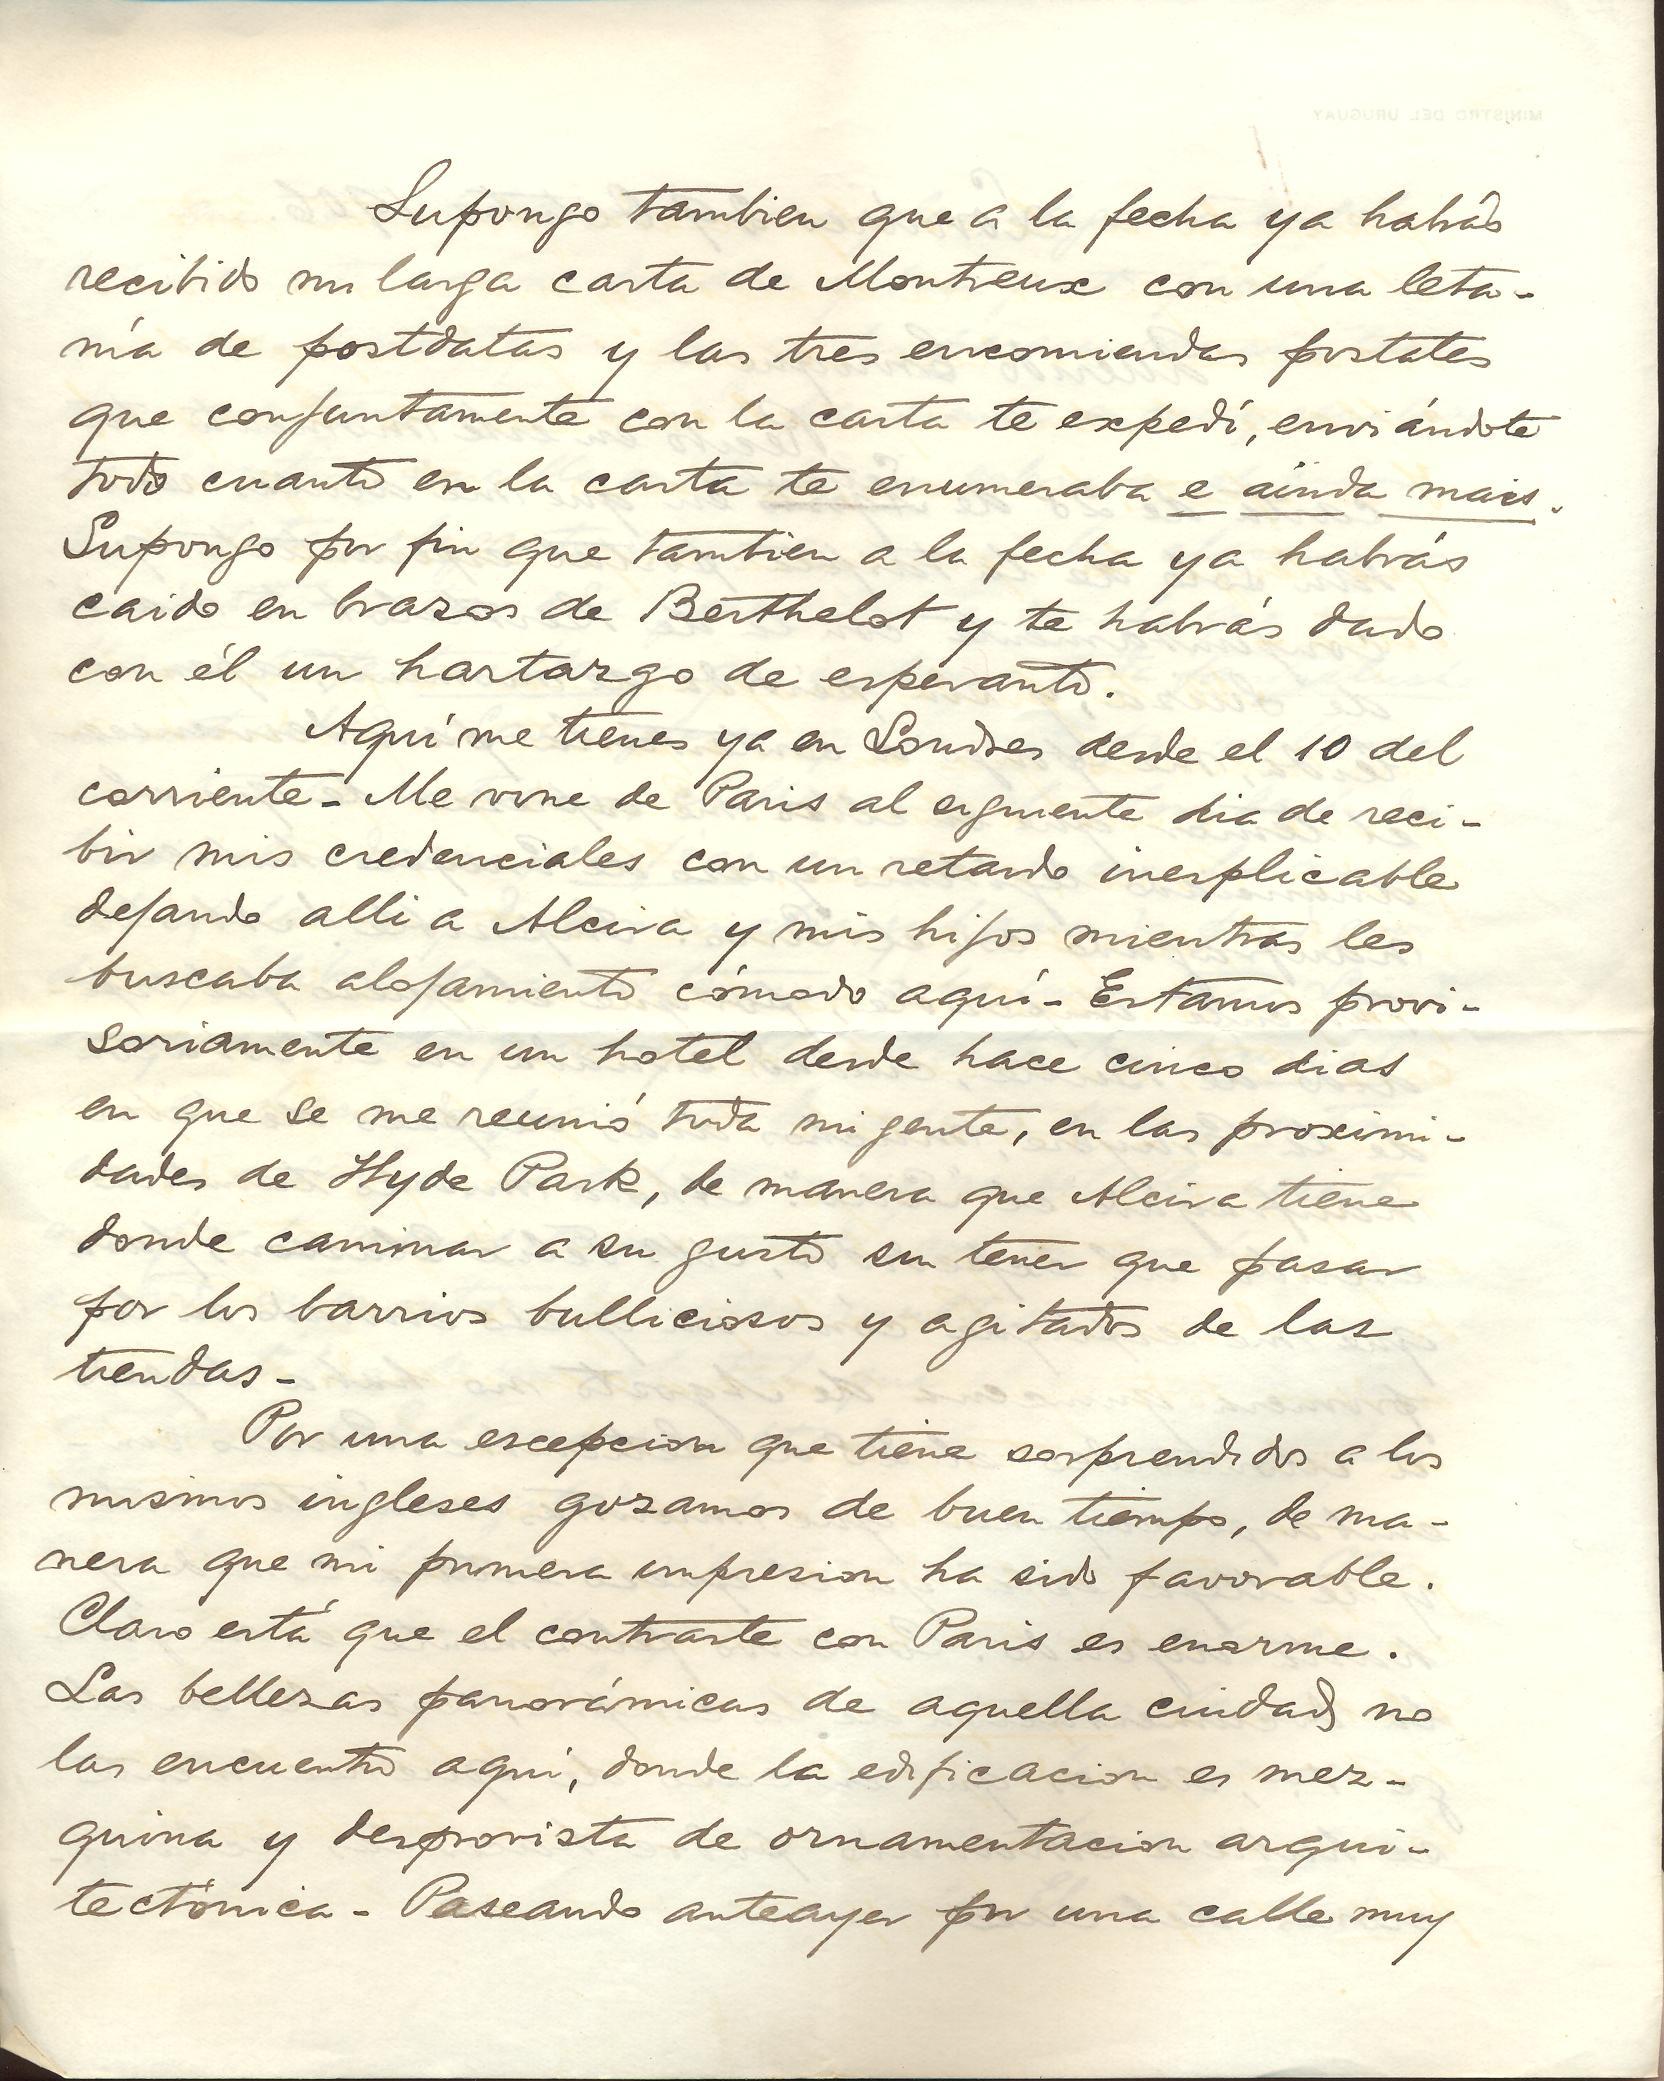 MINISTRO DEL URUGUAY
Supongo tambien que a la fecha ya habrás
recibido mi larga carta de Montreux con una leta-
nía de postdatas y las tres encomiendas postales
que conjuntamente con la carta te expedí, enviándote
todo cuanto en la carta te enumeraba e aínda mais.
Supongo por fin que tambien a la fecha ya habrás
caido en brazos de Berthelot y te habrás dado
con él un hartazgo de esperanto.
Aquí me tienes ya en Londres desde el 10 del
corriente - Me vine de Paris al siguiente dia de reci-
bir mis credenciales con un retardo inesplicable
dejando alli a Alcira y mis hijos mientras les
buscaba alojamiento cómodo aquí - Estamos provi-
soriamente en un hotel desde hace cinco dias
en que se me reunió toda mi gente, en las proximi-
dades de Hyde Park, de manera que Alcira tiene
donde caminar a su gusto sin tener que pasar
por los barrios bulliciosos y agitados de las
tiendas -
Por una escepcion que tiene sorprendidos a los
mismos ingleses gozamos de buen tiempo, de ma-
nera que mi primera impresion ha sido favorable.
Claro está que el contraste con Paris es enorme.
Las bellezas panorámicas de aquella ciudad no
las encuentro aquí, donde la edificacion es mez-
quina y desprovista de ornamentacion arqui-
tectónica - Paseando anteayer por una calle muy